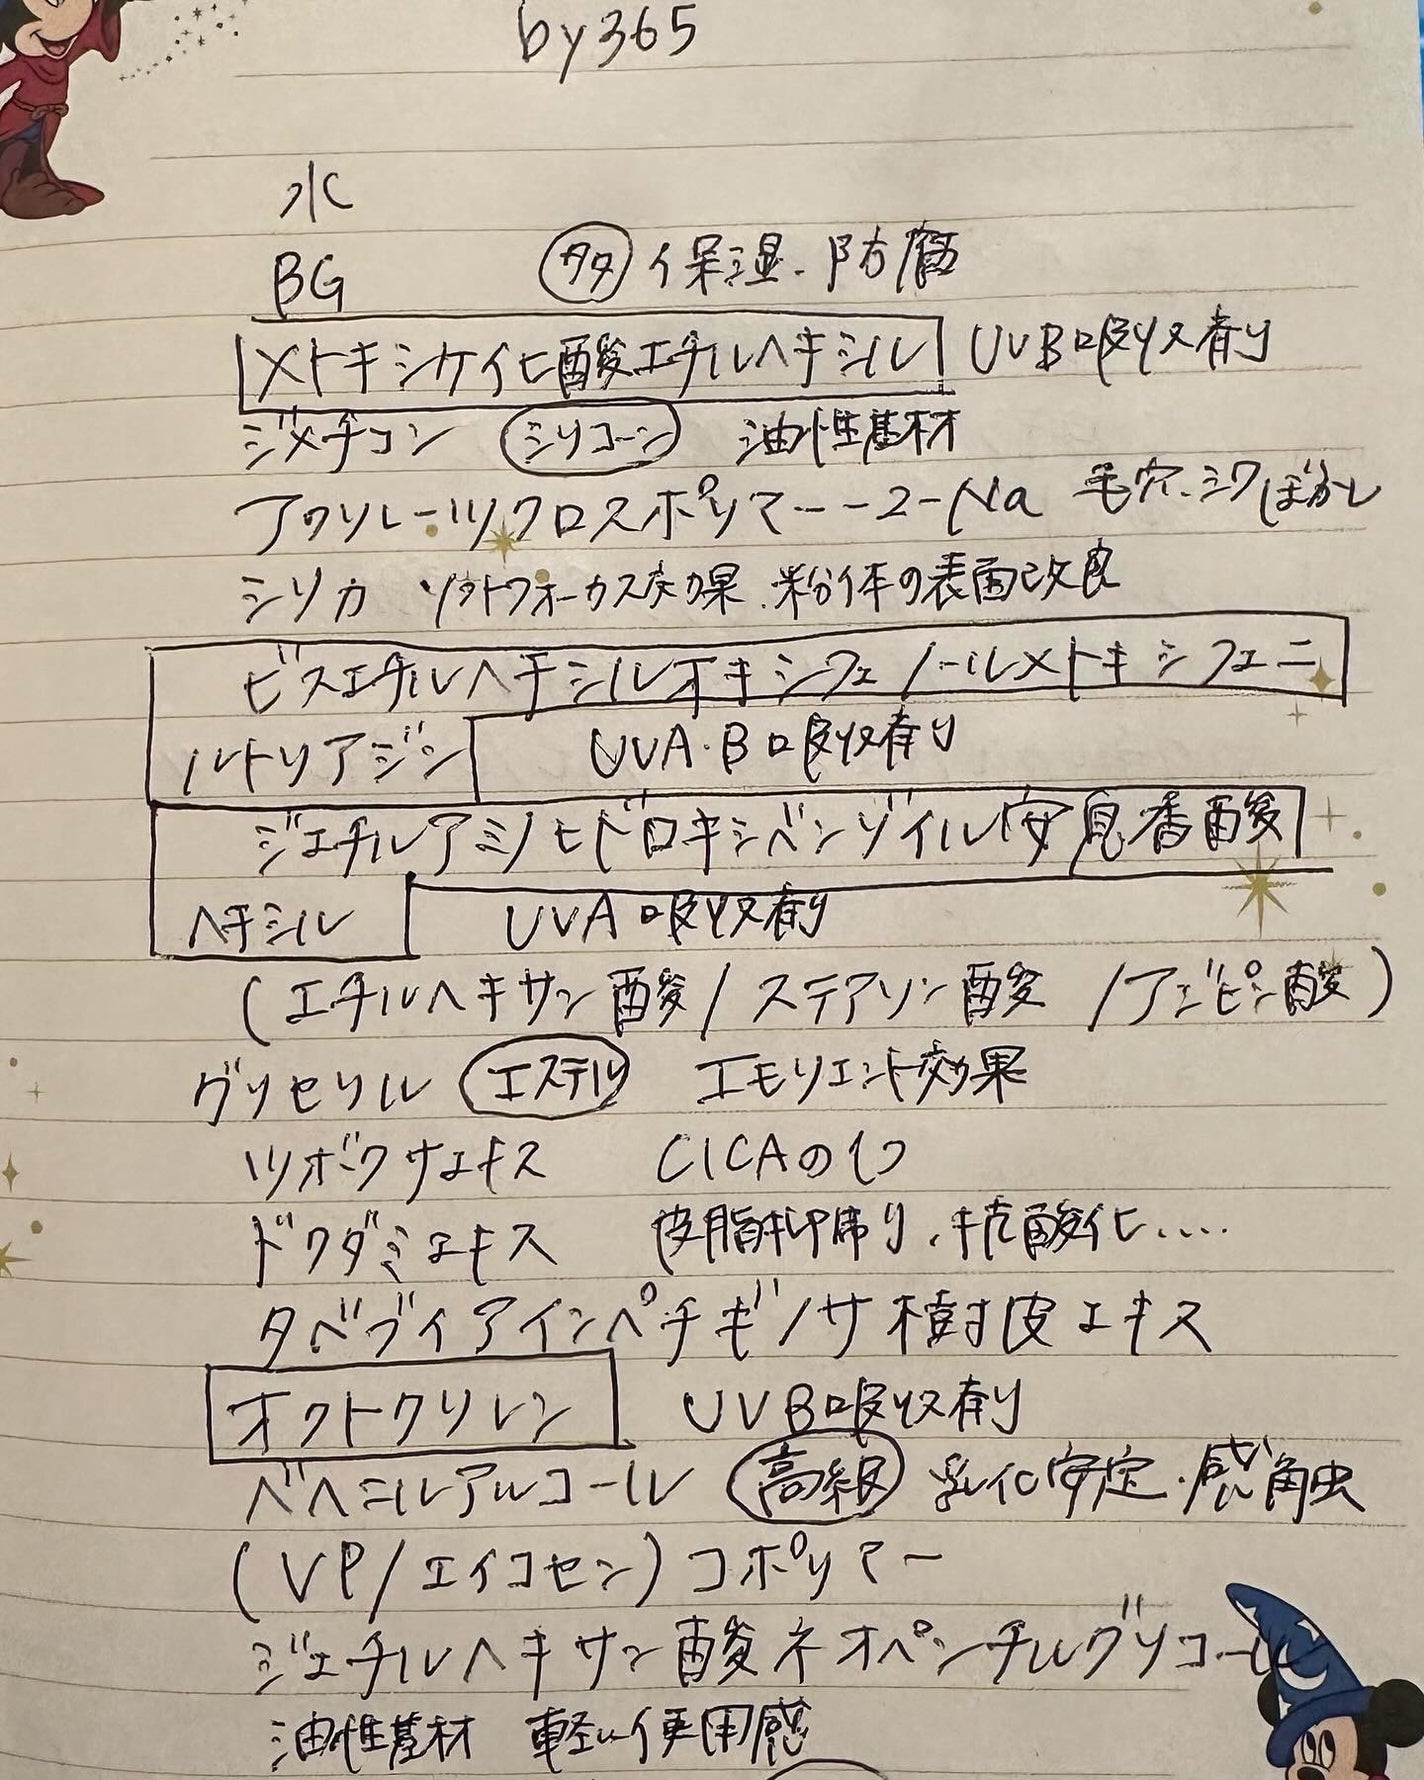 by365
水
BG 多 保湿.防腐
メトキシケイヒ酸エチルヘキシル UVB吸収剤
ジメチコン シリコーン 油性基材
アクリレーツクロスポリマー-2-Na 毛穴.シワぼかし
シリカ ソフトフォーカス効果.粉体の表面改良
ビスエチルヘキシルオキシフェノールメトキシフェニ
ルトリアジン UVA・B吸収剤
ジエチルアミノヒドロキシベンゾイル安息香酸
ヘキシル UVA吸収剤
(エチルヘキサン酸/ステアリン酸/アジピン酸)
グリセリル エステル エモリエント効果
ツボクサエキス CICAの1つ
ドクダミエキス 皮脂抑制.抗酸化.....
タベブイアインペチギノサ樹皮エキス
オクトクリレン UVB吸収剤
ベヘニルアルコール 高級 乳化安定.感触
(VP/エイコセン)コポリマー
ジエチルヘキサン酸ネオペンチルグリコール
油性基材 軽い使用感